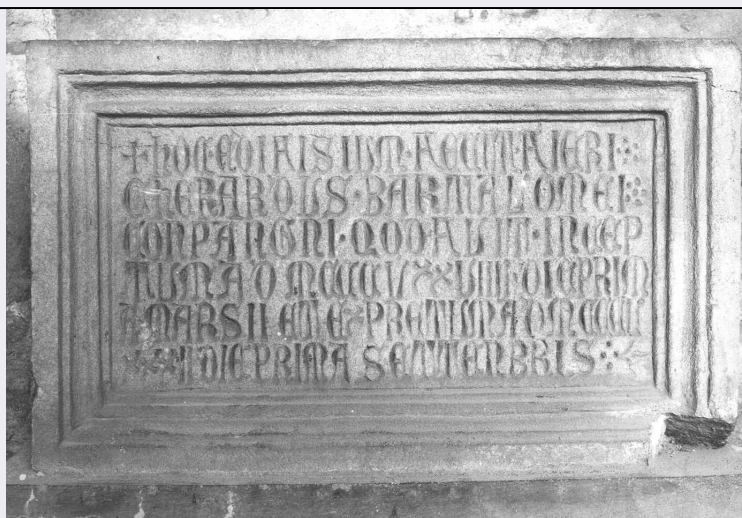 + HOC EDIFISIUM FECIT FIERI
GHERARDUS BARTALOMEI
CONPANGNI QOD FUIT INCEP
TUM A D DIE PRIM
A MARSII ET EXPRETUM A D
DIE PRIMA SETTENBRIS